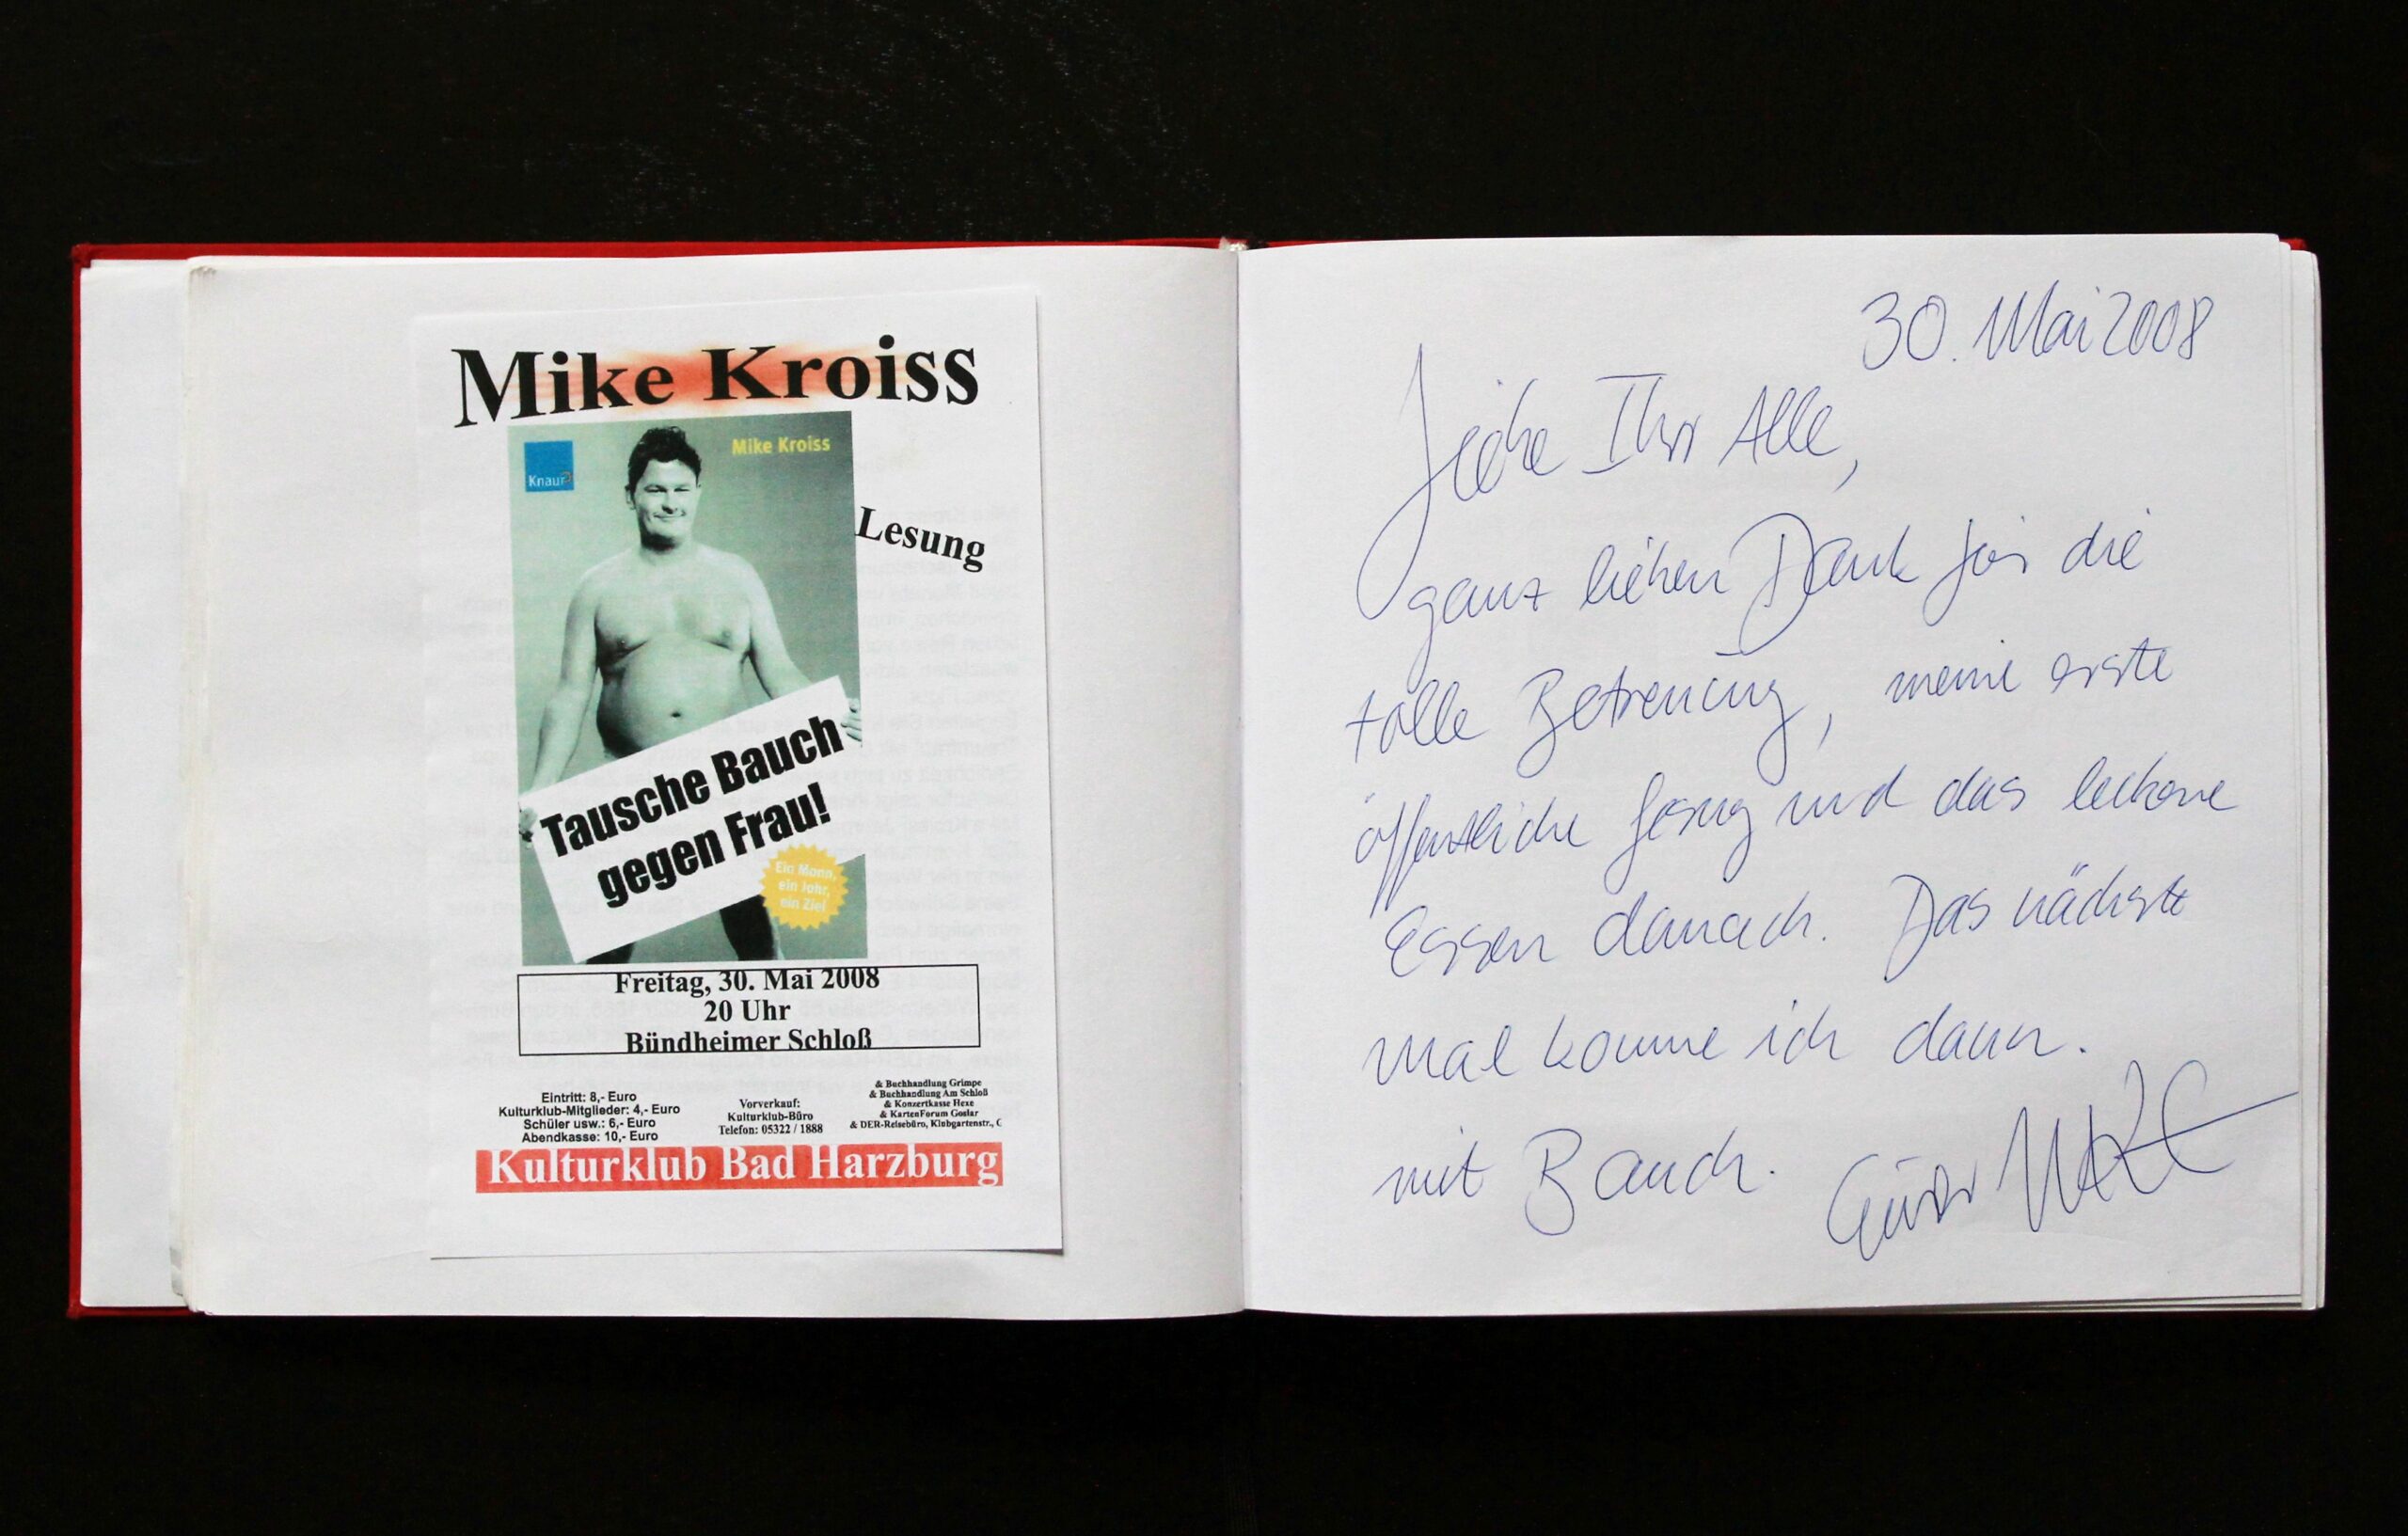 Mike Kroiss
Knaur
Mike Kroiss
Lesung
Tausche Bauch
gegen Frau!
Ein Mann,
ein Jahr,
ein Ziel
Freitag, 30. Mai 2008
20 Uhr
Bündheimer Schloß
Eintritt: 8,- Euro
Kulturklub-Mitglieder: 4,- Euro
Schüler usw.: 6,- Euro
Abendkasse: 10,- Euro
Vorverkauf:
Kulturklub-Büro
Telefon: 05322 / 1888
& Buchhandlung Grimpe
& Buchhandlung Am Schloß
& Konzertkasse Hexe
& KartenForum Goslar
& DER-Reisebüro, Klubgartenstr.,
Kulturklub Bad Harzburg
30. Mai 2008
Liebe Ihr Alle,
ganz lieben Dank für die
tolle Betreuung, meine erste
öffentliche Lesung und das leckere
Essen danach. Das nächste
Mal komme ich dann.
mit Bauch.
Euer